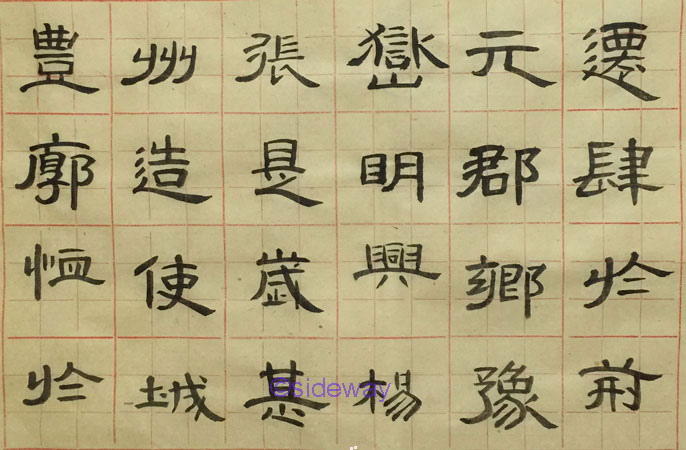 遷肆於
元郡鄉豫
嶽明興楊
張是歲
州造使城
豊廓恤於
©sideway